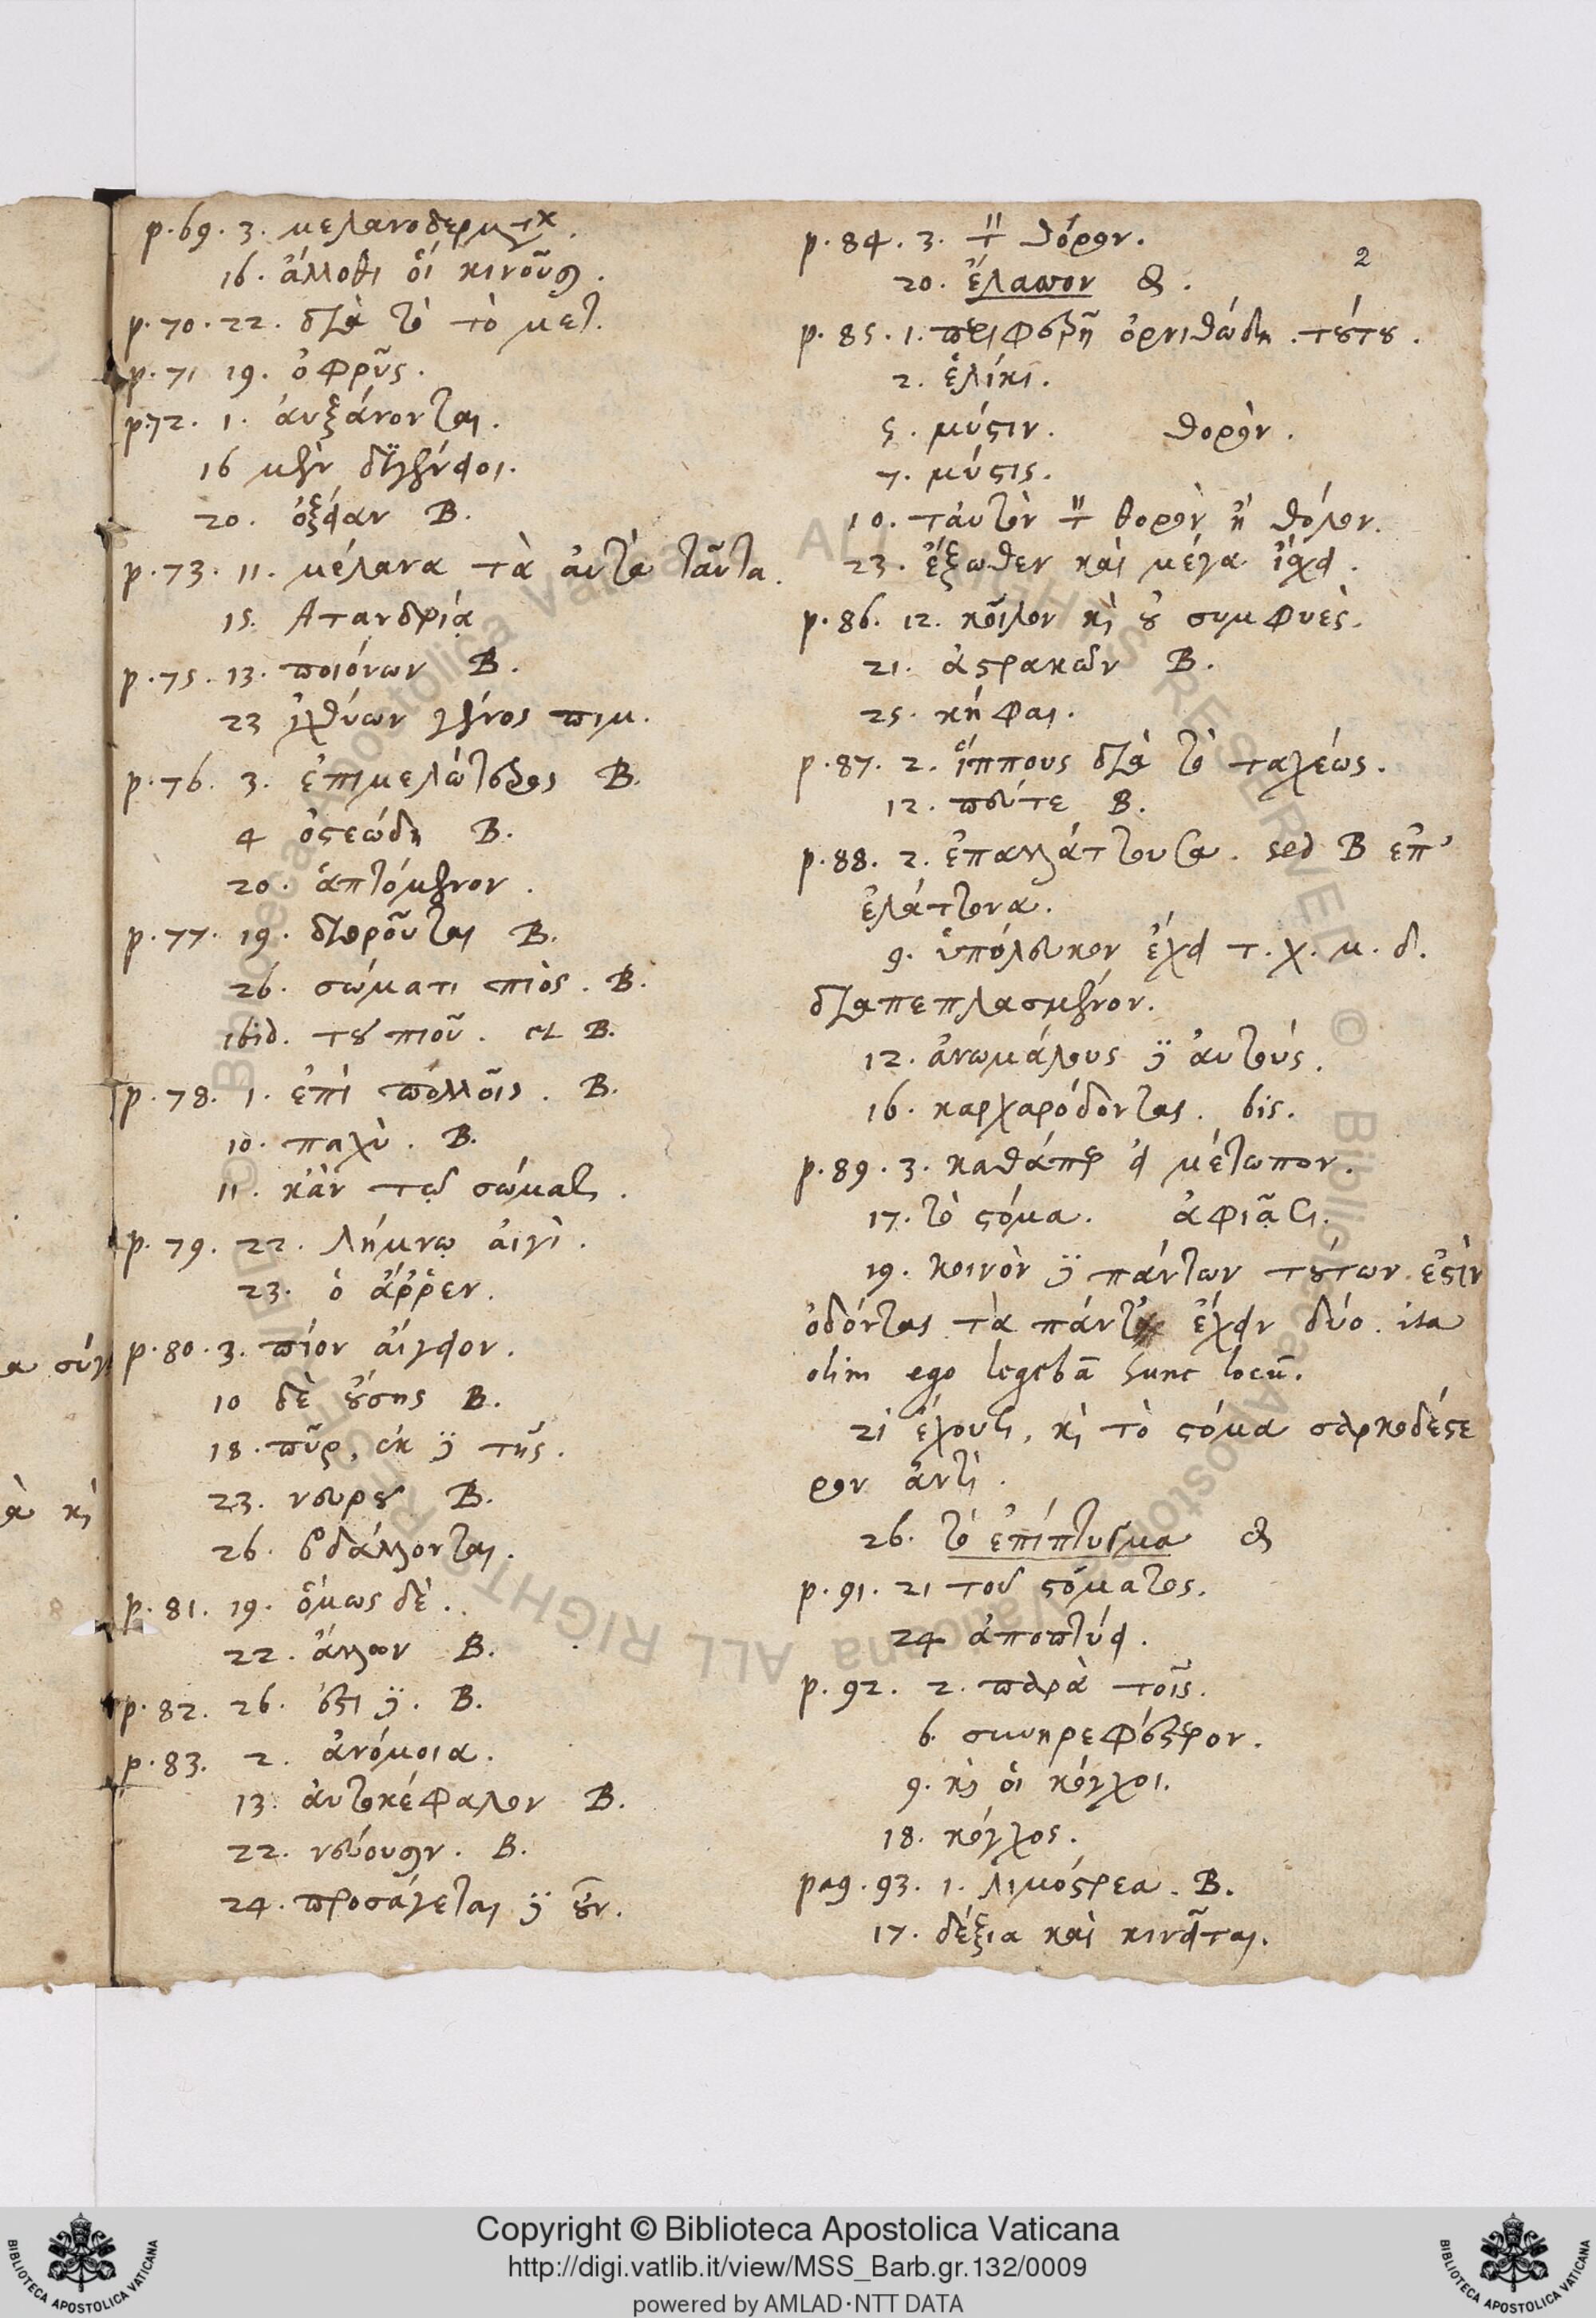 p. 69. 3. μελανοδερμ
16. ἄλλοθι οἱ κινοῦσ.
p. 70. 22. διὰ τὸ τὸ μετ.
p. 71 19. ὀφρῦς.
p. 72. 1. ἀυξάνονται.
16 μὲν
20. B.
p. 73. 11. μέλανα τὰ ἀυτὰ ταῦτα.
15. Ατανδρία
p. 75. 13. ποιόνων B.
23 ἰχθύων γένος πιμ.
p. 76. 3. B.
4 ὀστεώδη B.
20. ἁπτόμενον.
p. 77. 19. διαιροῦνται B.
26. σώματι πιὸς. B.
ibid. τοῦ πιοῦ. et B.
p. 78. 1. ἐπὶ πολλοῖς. B.
10. παχὺ. B.
11. κἀν τῷ σώματι.
p. 79. 22. Λήμνῳ ἀιγὶ.
23. ὁ ἄῤῥεν.
α σύγ
p. 80. 3. πίον ἀίγειον.
10 δὲ οὔσης B.
18. πῦρ, ἐκ δὲ τῆς.
ὰ καὶ
23. νευροῦ B.
26.
p. 81. 19. ὅμως δὲ.
22. B.
p. 82. 26. ἔτι δὲ. B.
p. 83. 2. ἀνόμοια.
13. ἀυτοκέφαλον B.
22. νεύουσιν. B.
24. προσάγεται δὲ οὖν.
2
p. 84. 3. τὸν θόρον.
20. ἔλαττον &.
p. 85. 1. περιφερῆ ὀρνιθώδη. τούτου.
2. ἑλίκι.
5. μύστιν. θορὸν.
7. μύστις.
10. ταυτὸν τὸν θορὸν ἢ θόλον.
23. ἔξωθεν καὶ μέγα ἴσχει.
p. 86. 12. κοῖλον καὶ οὐ συμφυὲς.
21. ἀστρακῶν B.
25. κήφαι.
p. 87. 2. ἵππους διὰ τὸ ταχέως.
12. πεύτε B.
p. 88. 2. ἐπαλλάττουσα. sed B ἐπ'
ἐλάττονα.
9. ὑπόλευκον ἔχει τ. χ. μ. δ.
διαπεπλασμένον.
12. ἀνωμάλους δὲ ἀυτούς.
16. καρχαρόδοντας. bis.
p. 89. 3. καθάπερ εἰ μέτωπον.
17. τὸ στόμα. ἀφιᾶσι.
19. κοινὸν δὲ πάντων τούτων ἐστὶν
ὀδόντας τὰ πάντα ἔχειν δύο. ita
olim ego legebā hunc locū.
21 ἔχουσι, καὶ τὸ στόμα σαρκωδέστε
ρον ἀντὶ.
26. τὸ ἐπίπτυγμα &
p. 91. 21 τοῦ στόματος.
24 ἀποπτύει.
p. 92. 2. παρὰ τοῖς.
6. σκυηρεφέστερον.
9. καὶ οἱ κόγχοι.
18. κόγχος.
pag. 93. 1. λιμόστρεα. B.
17. δέξια καὶ κινεῖται.
Copyright © Biblioteca Apostolica Vaticana
http://digi.vatlib.it/view/MSS_Barb.gr.132/0009
powered by AMLAD·NTT DATA